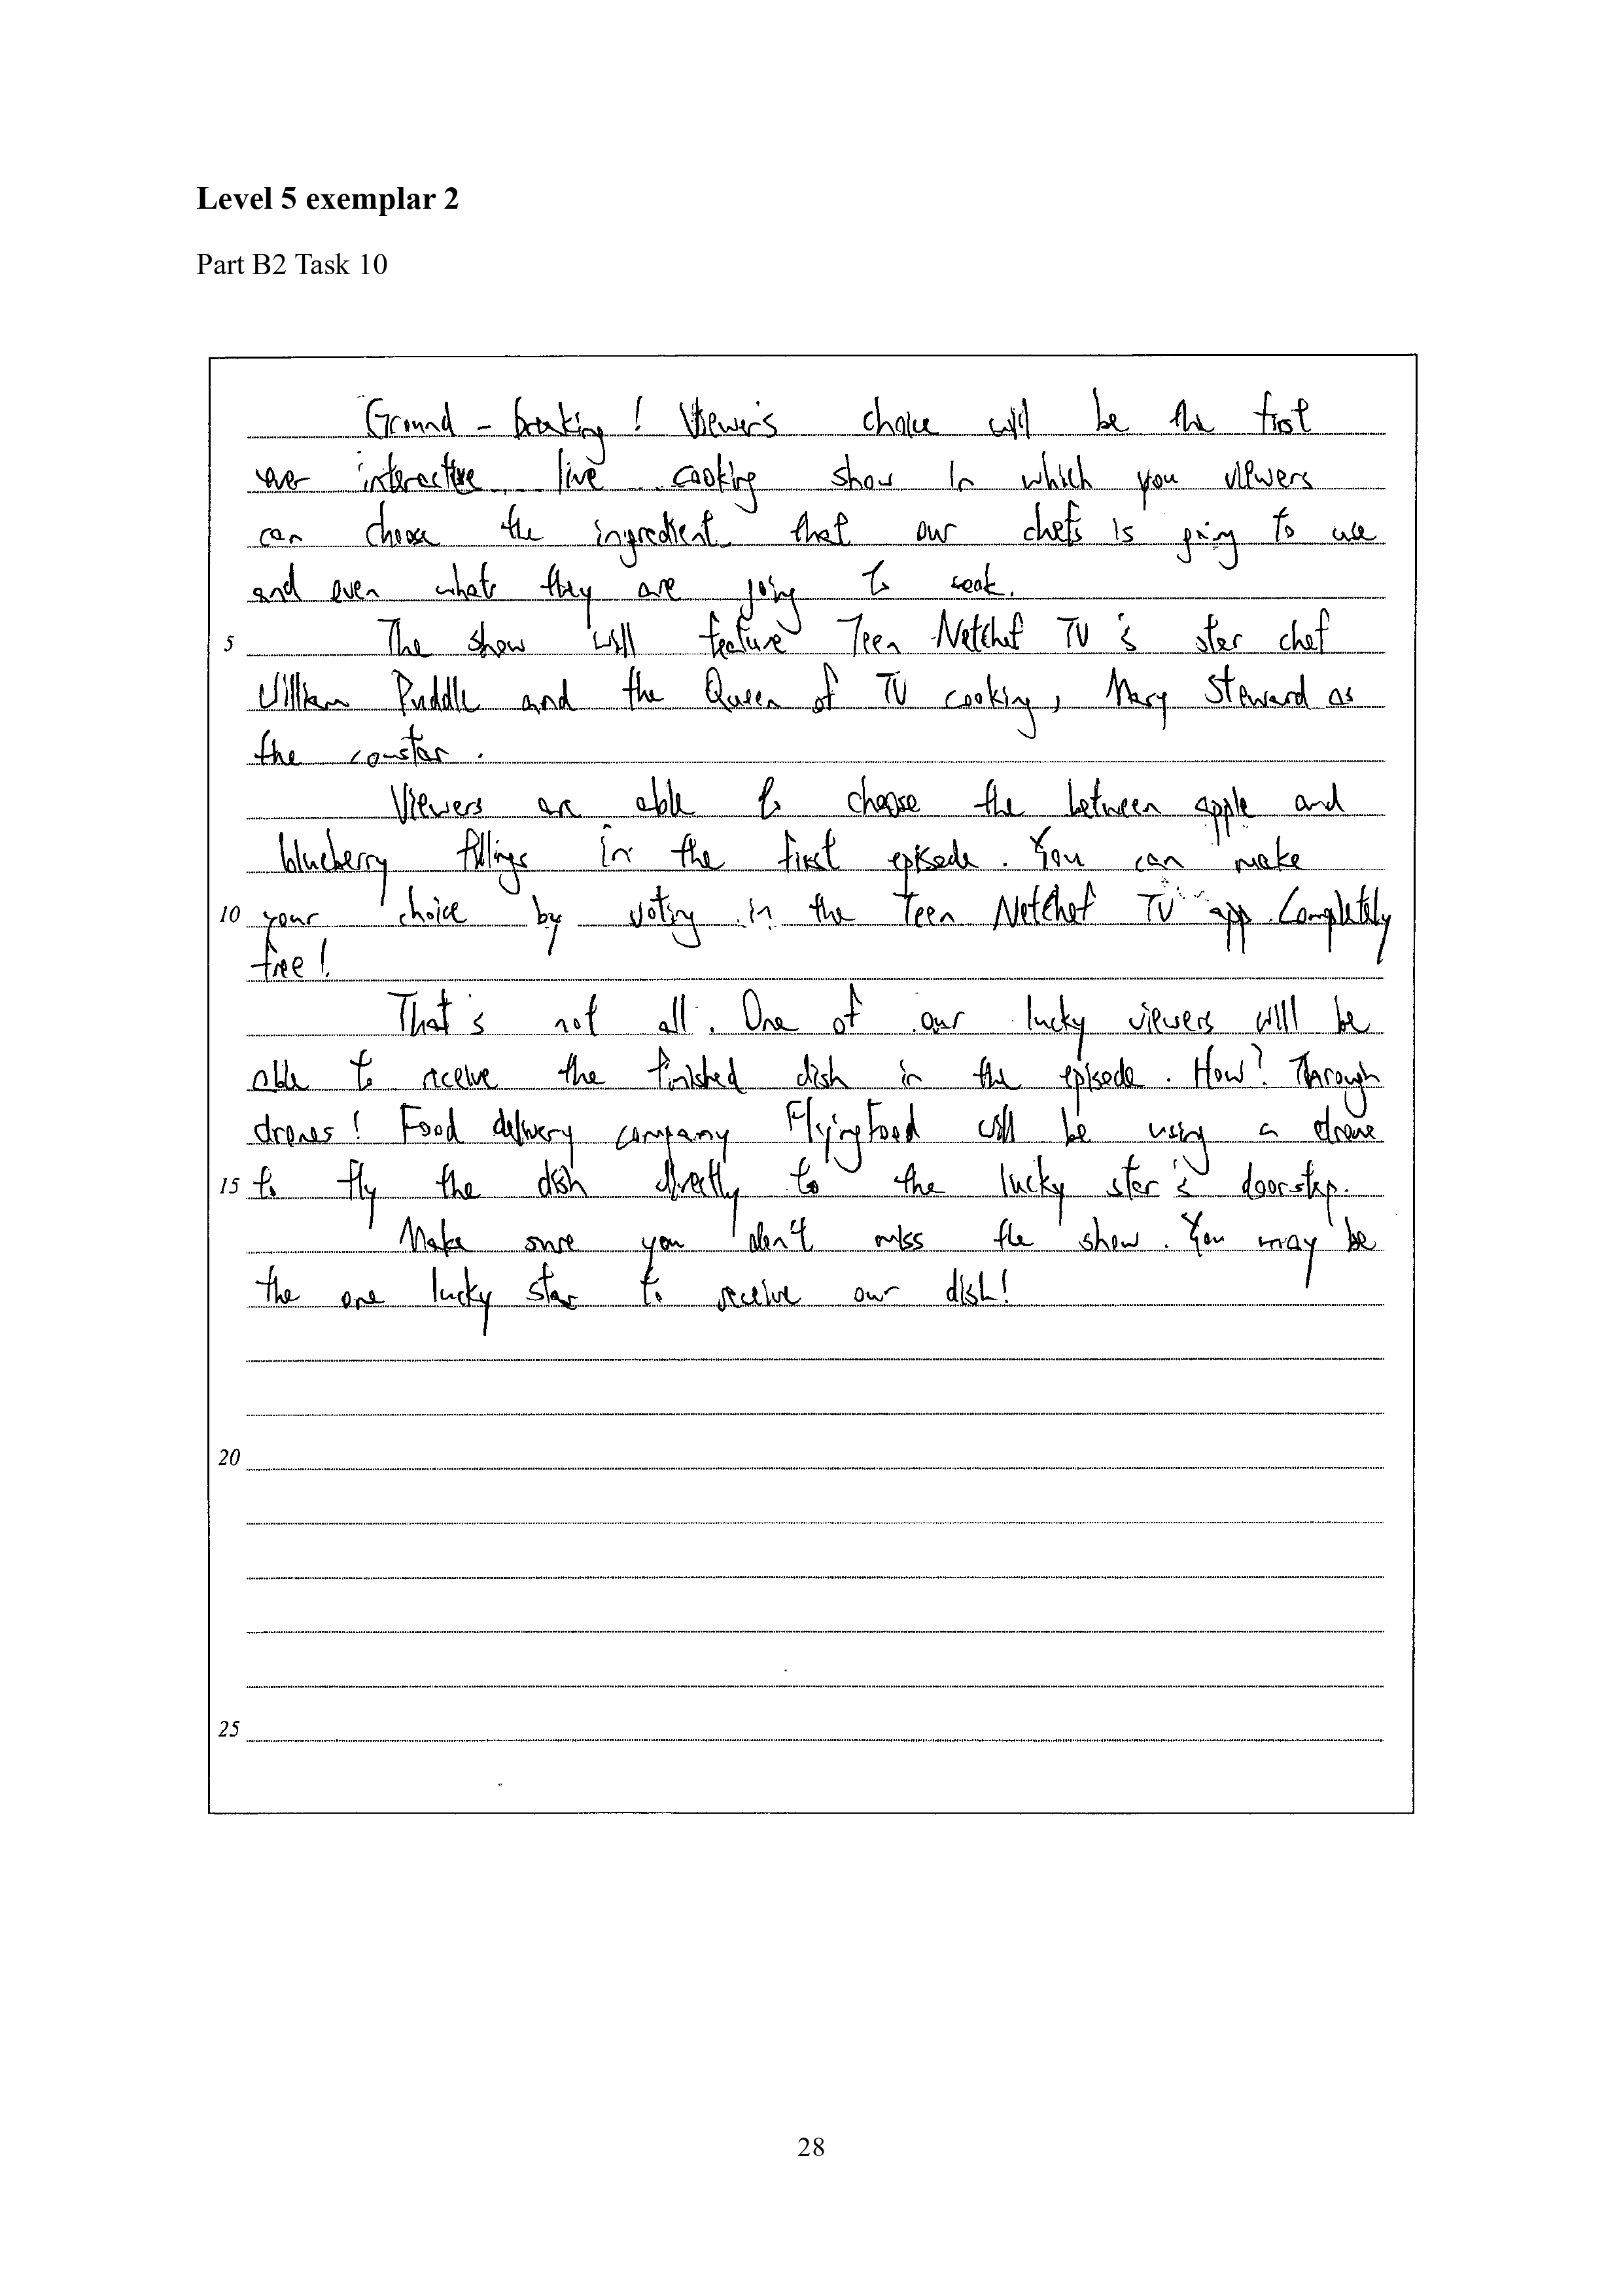 Level 5 exemplar 2
Part B2 Task 10
Ground - breaking! Viewer's choice will be the first
ever interactive live cooking show in which you viewers
can choose the ingredient that our chefs is going to use
and even whats they are going to cook.
5 The show will feature Teen Netchef TV's star chef
William Puddle and the Queen of TV cooking, Mary Steward as
the co-star.
Viewers are able to choose the between apple and
blueberry fillings in the first episode. You can make
10 your choice by voting in the Teen NetChef TV app. Completely
free!
That's not all. One of our lucky viewers will be
able to receive the finished dish in the episode. How? Through
drones! Food delivery company FlyingFood will be using a drone
15 to fly the dish directly to the lucky star's doorstep.
Make sure you don't miss the show. You may be
the one lucky star to receive our dish!
20
25
28